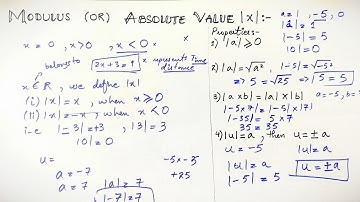 MODULUS (OR) ABSOLUTE VALUE |x| :-
x = 0, x > 0, x < 0
belongs to
2x+3=1
x represents Time distance
x ∈ R, we define |x|
(i) |x| = x, when x ≥ 0
(ii) |x| = -x, when x < 0
i-e |-3| = +3, |3| = 3
|0| = 0
u =
a = -7
a = 7
|a| = 7
|-7| = 7
-5 x -5
+25
Properties-
1) |a| ≥ 0
a = 1, -5, 0
|1| = 1
|-5| = 5
|0| = 0
2) |a| = √a², |-5| = √-5²
⇒ 5 = √25 ⇒ 5 = 5
3) |a x b| = |a| x |b|
a = -5, b =
|-5 x 7| = |-5| x |7|
|-35| = 5 x 7
35 = 35
4) |u| = a, then u = ± a
u = -5
|u| = a
|u| = a
|-5| = 5
u = ± a